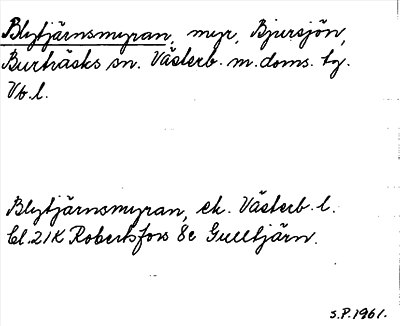 Blytjärnsmyran, myr, Bjursjön,
Burträsks sn. Västerb. m. doms. tg.
Vb. l.
Blytjärnsmyran, ek. Västerb. l.
bl. 21K Robertsfors 8c Gulltjärn.
S.P. 1961.